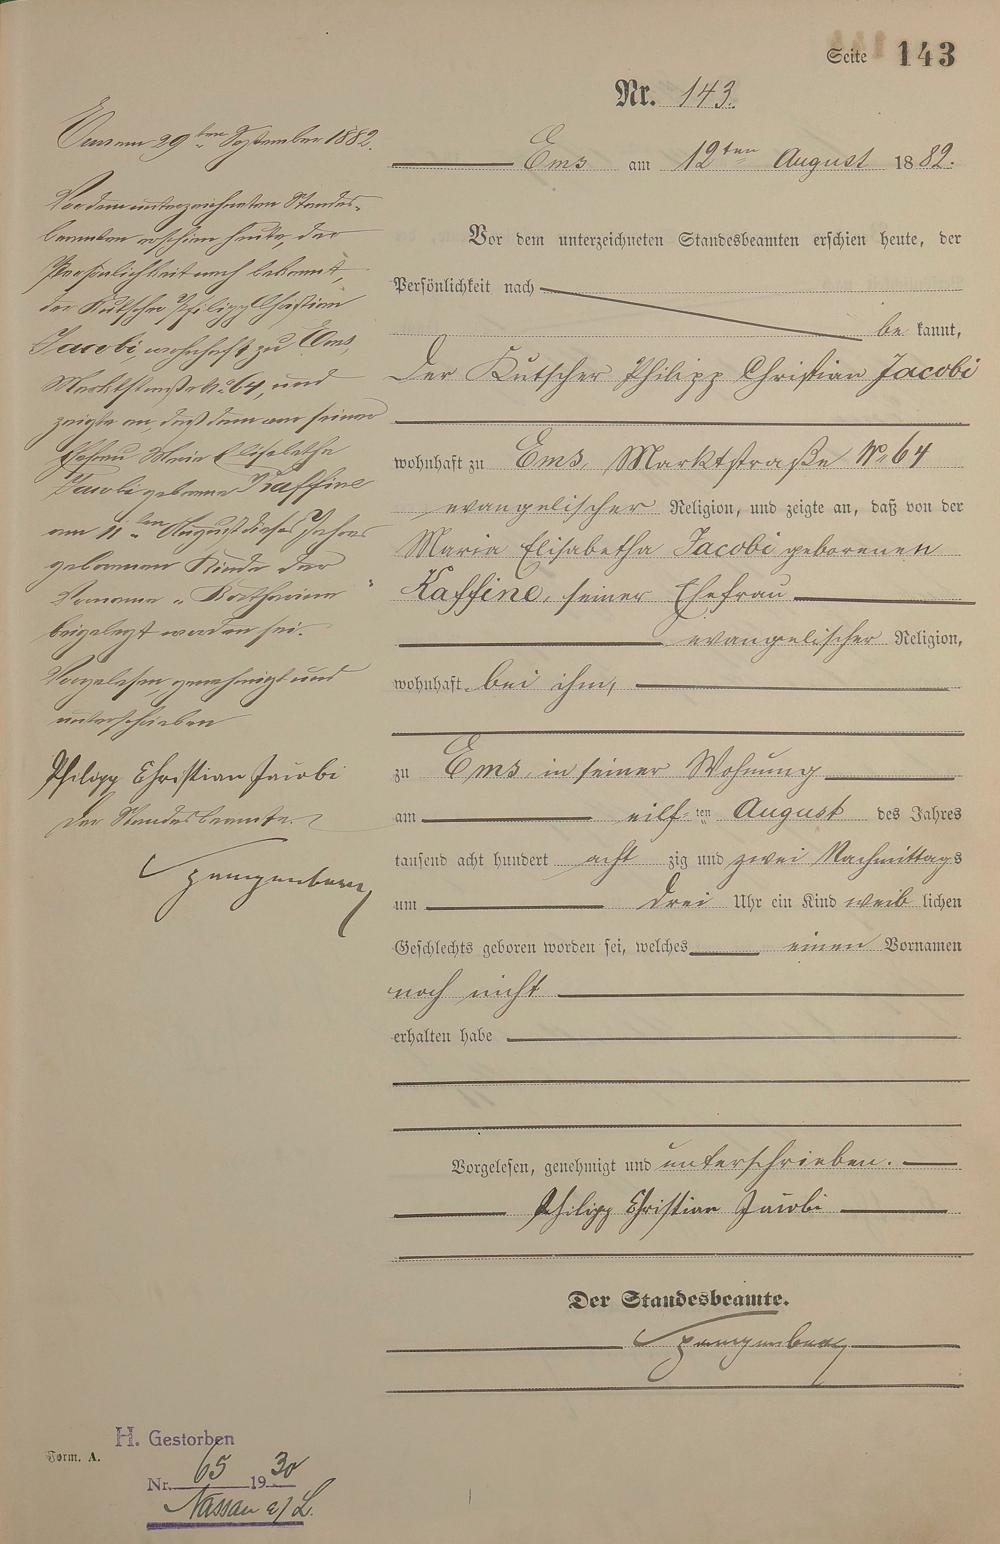 Seite 143
Nr. 143.
Ems am 12ten August 1882.
Vor dem unterzeichneten Standesbeamten erschien heute, der
Persönlichkeit nach
be kannt,
der Kutscher Philipp Christian Jacobi
wohnhaft zu Ems, Marktstraße No 64
evangelischer Religion, und zeigte an, daß von der
Maria Elisabetha Jacobi geborenen
Kaffine, seiner Ehefrau
evangelischer Religion,
wohnhaft bei ihm,
zu Ems, in seiner Wohnung
am eilf ten August des Jahres
tausend acht hundert acht zig und zwei Nachmittags
um drei Uhr ein Kind weib lichen
Geschlechts geboren worden sei, welches einen Vornamen
noch nicht
erhalten habe
Vorgelesen, genehmigt und unterschrieben.
Philipp Christian Jacobi
Der Standesbeamte.
Spangenberg
Ems am 29ten September 1882.
Vor dem unterzeichneten Standes-
beamten erschien heute, der
Persönlichkeit nach bekannt,
der Kutscher Philipp Christian
Jacobi, wohnhaft zu Ems,
Marktstraße No 64, und
zeigte an, daß dem von seiner
Ehefrau Maria Elisabetha
Jacobi geborene Kaffine
am 11ten August dieses Jahres
geborenen Kinde der
Vorname "Katharina"
beigelegt worden sei.
Vorgelesen, genehmigt und
unterschrieben
Philipp Christian Jacobi
Der Standesbeamte.
Spangenberg
H. Gestorben
Form. A.
Nr. 65 1930
Nassau a/L.